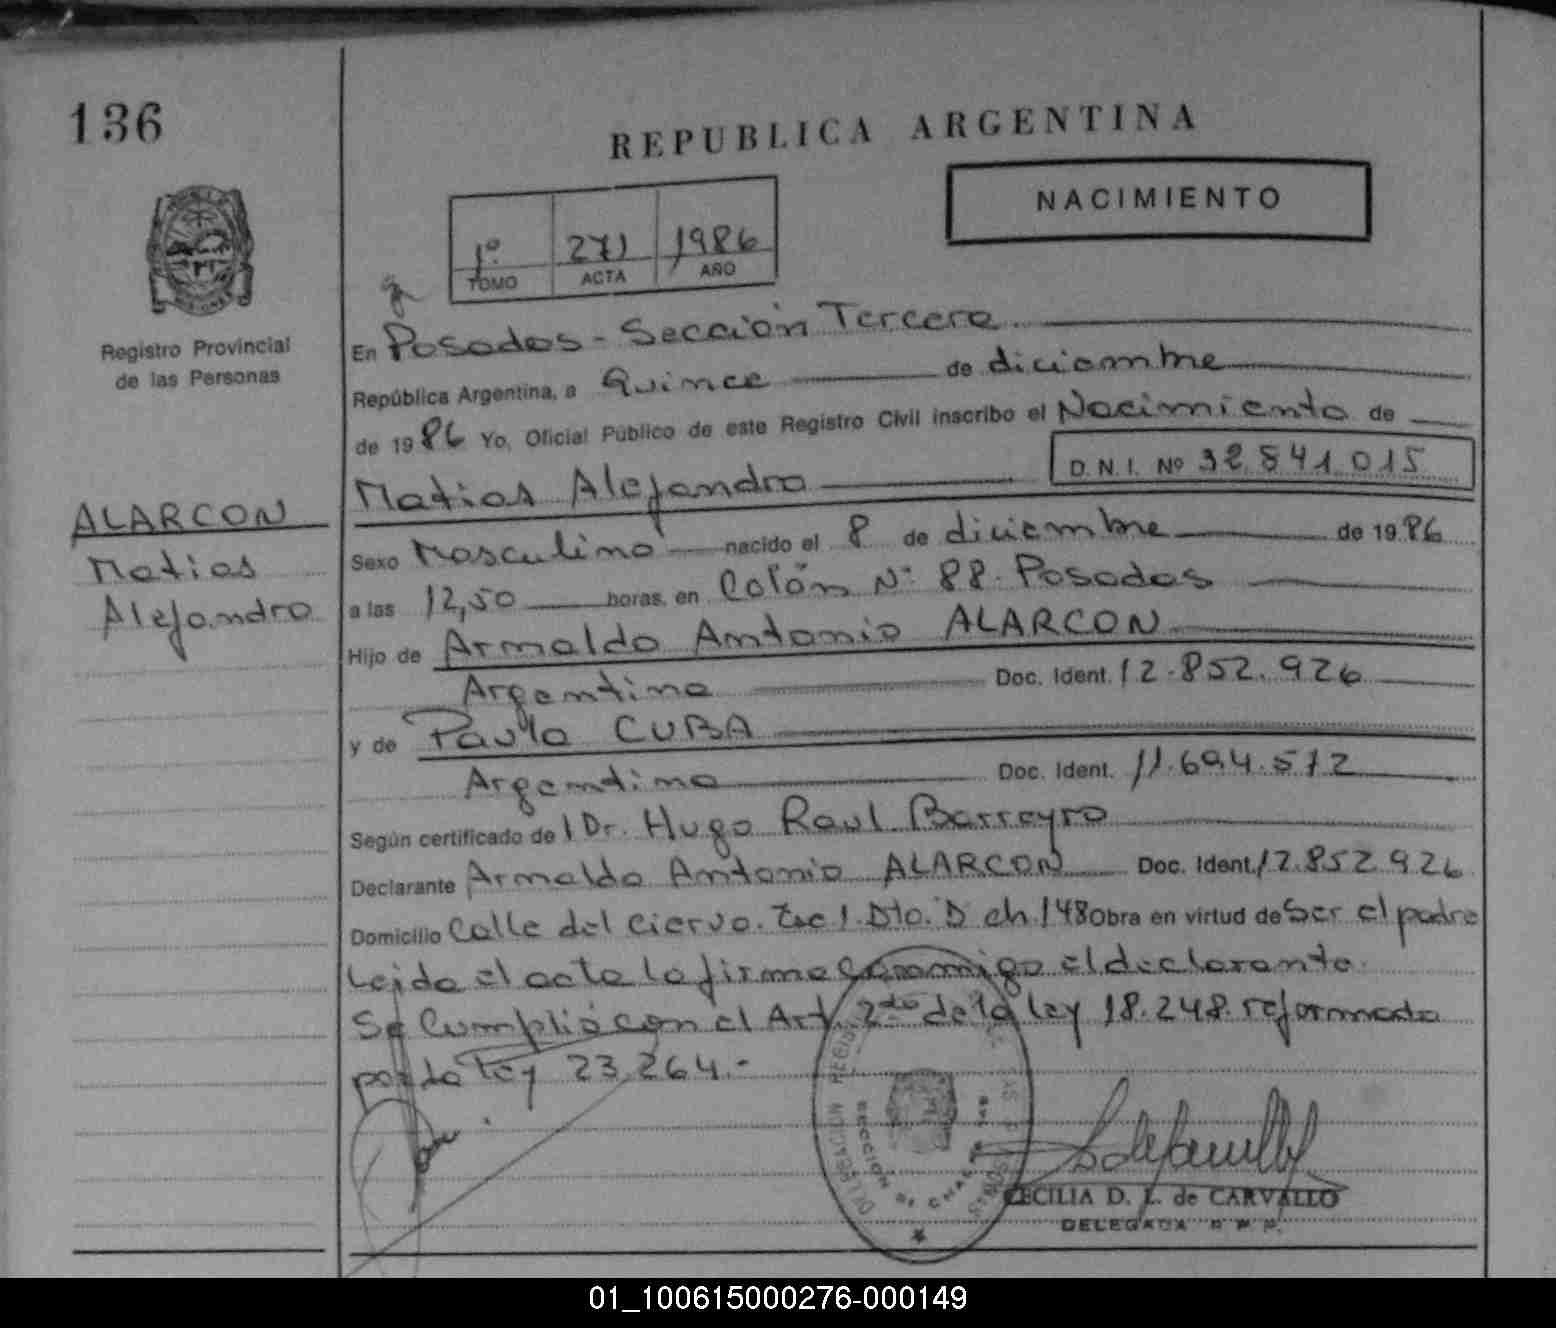 136
REPUBLICA ARGENTINA
NACIMIENTO
1º 271 1986
TOMO ACTA AÑO
Registro Provincial
de las Personas
En Posadas - Sección Tercera
República Argentina, a Quince de diciembre
de 1986 Yo, Oficial Público de este Registro Civil inscribo el Nacimiento de
Matias Alejandro
D.N.I. Nº 32.541.015
ALARCON
Matias
Alejandro
Sexo Masculino nacido el 8 de diciembre de 1986
a las 12,50 horas, en Colón Nº 88. Posadas
Hijo de Arnaldo Antonio ALARCON
Argentina Doc. Ident. 12.852.926
y de Paula CUBA
Argentina Doc. Ident. 11.694.572
Según certificado del Dr. Hugo Raul Barreyro
Declarante Arnaldo Antonio ALARCON Doc. Ident. 12.852.926
Domicilio Calle del Ciervo. Esc 1. Dto. D ch. 148 Obra en virtud de Ser el padre
Leida el acta la firma conmigo el declarante.
Se Cumplió con el Art. 2do de la ley 18.248. reformada
por la ley 23.264.-
CECILIA D. L. de CARVALLO
DELEGADA R.P.P.
01_100615000276-000149